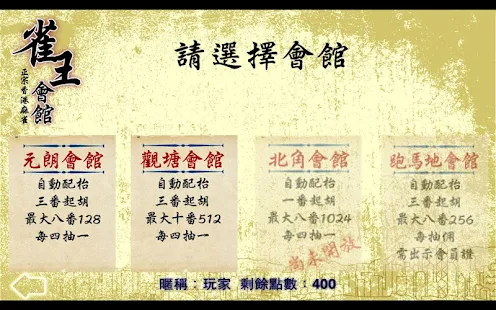 雀王會館
正宗香港麻雀
請選擇會館
元朗會館
自動配枱
三番起胡
最大八番128
每四抽一
觀塘會館
自動配枱
三番起胡
最大十番512
每四抽一
北角會館
自動配枱
一番起胡
最大八番1024
每四抽一
尚未開放
跑馬地會館
自動配枱
三番起胡
最大八番256
每抽佣
需出示會員證
暱稱：玩家 剩餘點數：400